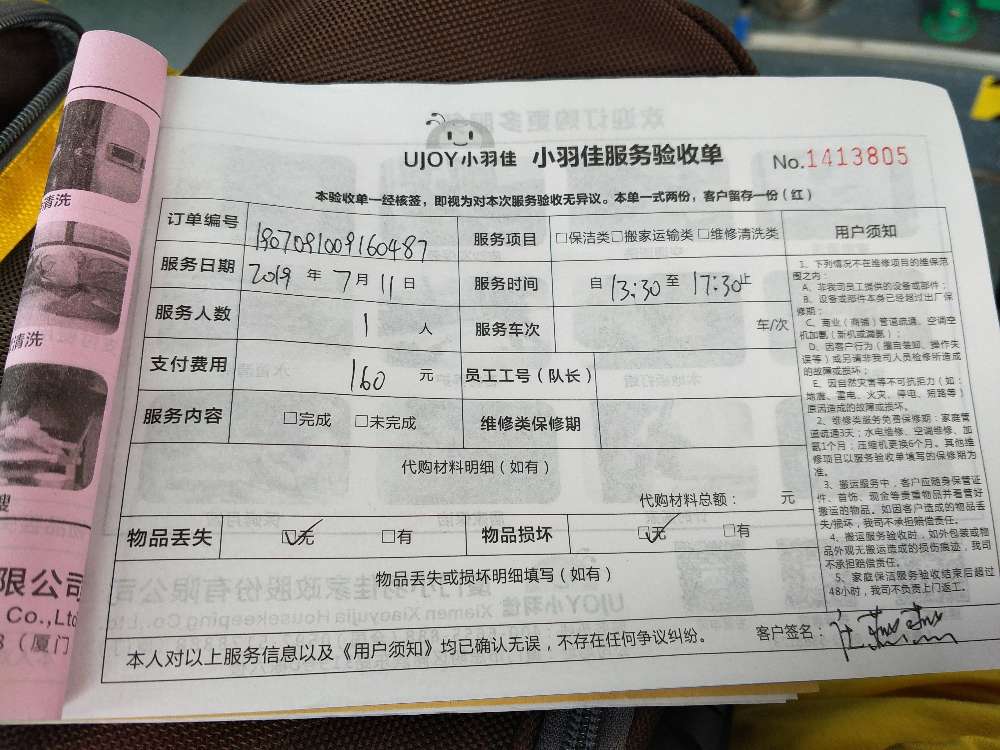 UJOY小羽佳 小羽佳服务验收单 No.1413805
本验收单一经核签，即视为对本次服务验收无异议。本单一式两份，客户留存一份（红）
订单编号 1907091009160487 服务项目 □保洁类□搬家运输类□维修清洗类
服务日期 2019年7月11日 服务时间 自13:30至17:30止
服务人数 1人 服务车次 车/次
支付费用 160元 员工工号（队长）
服务内容 □完成 □未完成 维修类保修期
代购材料明细（如有）
代购材料总额： 元
物品丢失 ☑无 □有 物品损坏 ☑无 □有
物品丢失或损坏明细填写（如有）
本人对以上服务信息以及《用户须知》均已确认无误，不存在任何争议纠纷。 客户签名：
用户须知
1、下列情况不在维修项目的维保范
围之内：
A、非我司员工提供的设备或部件；
B、设备或部件本身已经超过出厂保
修期；
C、商业（商铺）管道疏通、空调空
机加氟（新机或漏氟）；
D、因客户行为（擅自装卸、操作失
误等）或另请非我司人员检修所造成
的故障或损坏；
E、因自然灾害等不可抗拒力（如：
地震、雷电、火灾、停电、短路等）
原因造成的故障或损坏。
2、维修类服务免费保修期：家庭管
道疏通3天；水电维修、空调维修、加
氟1个月；压缩机更换6个月。其他维
修项目以服务验收单填写的保修期为
准。
3、搬运服务中，客户应随身保管证
件、首饰、现金等贵重物品并看管好
搬运的物品。如因客户造成的物品丢
失/损坏，我司不承担赔偿责任。
4、搬运服务验收时，如外包装或物
品外观无搬运造成的损伤痕迹，我司
不承担赔偿责任。
5、家庭保洁服务验收结束后超过
48小时，我司不负责上门返工。
清洗
清洗
限公司
Co.,Ltd
（厦门